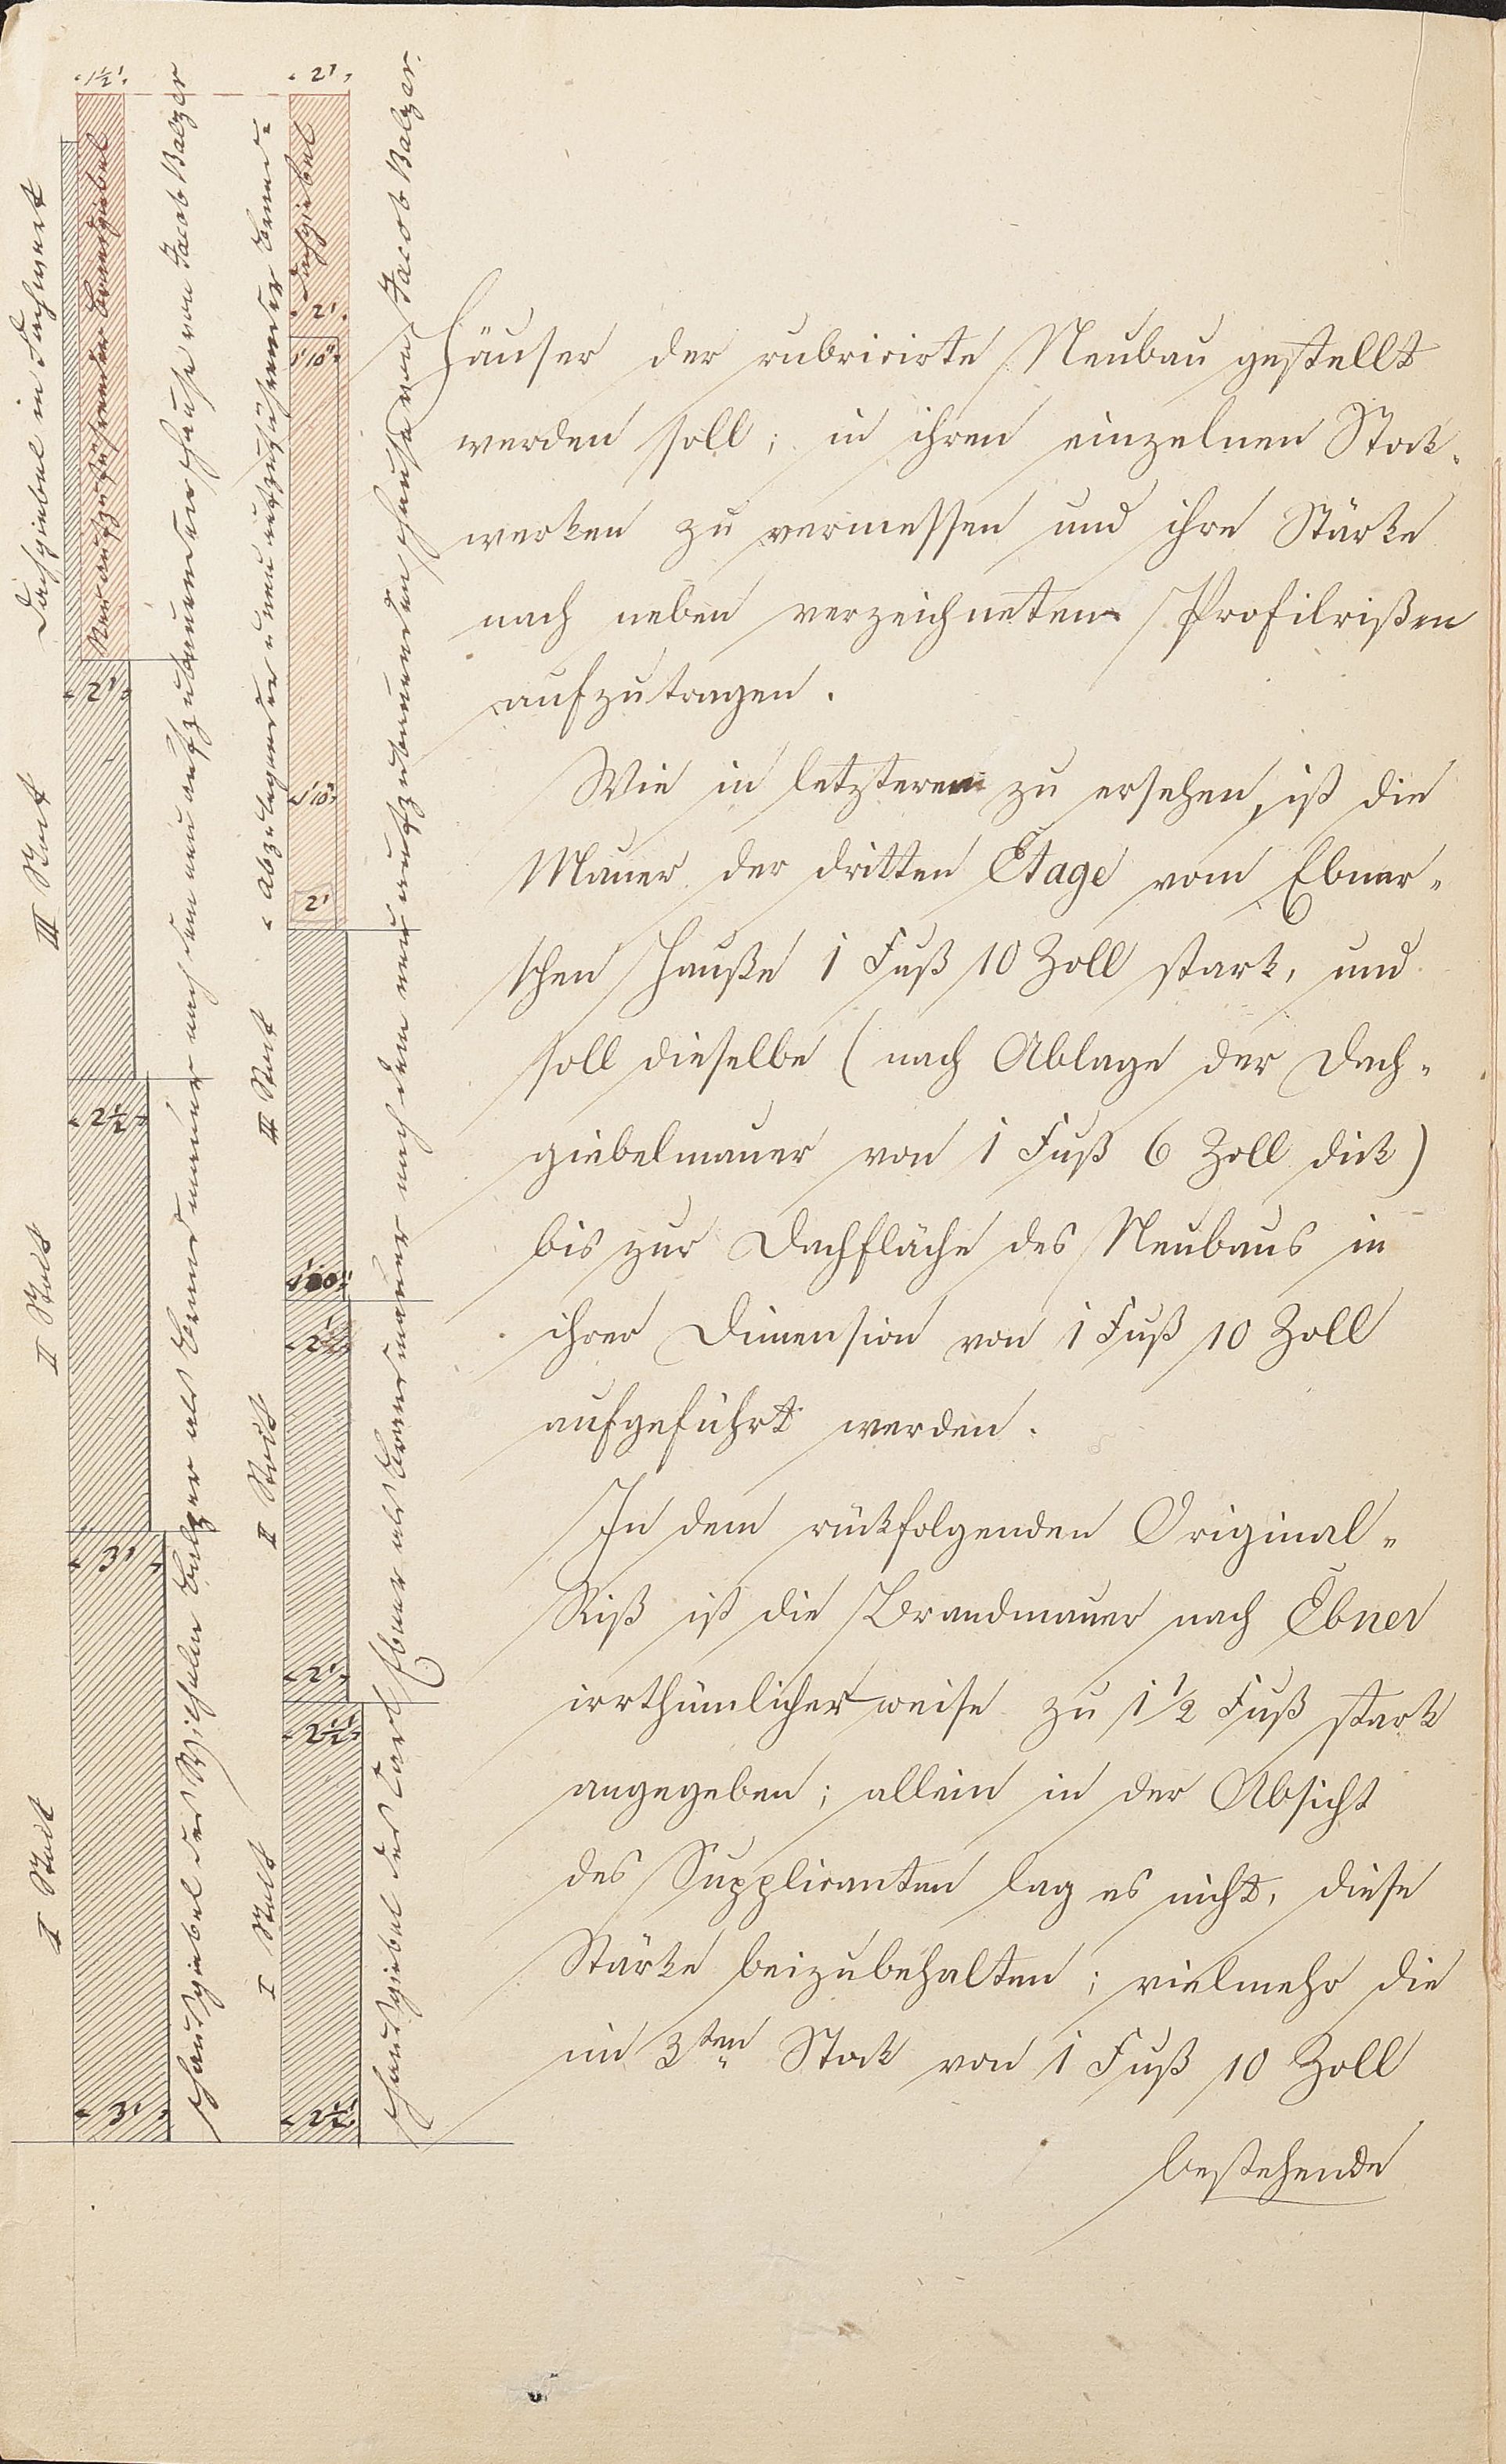 1½'
2'
Dachgiebel im Dachwerk
Neu aufzuführender Brandgiebel
Hausgiebel des Wilhelm Balzer als Brandmauer nach dem neu aufzubauenden Hause von Jacob Balzer
Abzulegender u neu aufzuführender Brand-
Dachgiebel
Hausgiebel des Carl Ebner als Brandmauer nach dem neu aufzubauenden Hause von Jacob Balzer.
2'
1'10"
1'10"
2'
2'
2½'
3'
3'
III Stock
II Stock
I Stock
III Stock
II Stock
I Stock
1'10"
2'
2'
2½'
2½'
Häuser der rubricirte Neubau gestellt
werden soll; in ihren einzelnen Stock-
werken zu vermessen und ihre Stärke
nach neben verzeichneten Profilrißen
aufzutragen.
Wie in letzteren zu ersehen, ist die
Mauer der dritten Etage vom Ebner-
schen Hauße 1 Fuß 10 Zoll stark, und
soll dieselbe (nach Ablage der Dach-
giebelmauer von 1 Fuß 6 Zoll dick)
bis zur Dachfläche des Neubaus in
ihrer Dimension von 1 Fuß 10 Zoll
aufgeführt werden.
In dem rückfolgenden Original-
Riß ist die Brandmauer nach Ebner
irrthümlicherweise zu 1½ Fuß stark
angegeben; allein in der Absicht
des Supplicanten lag es nicht, diese
Stärke beizubehalten; vielmehr die
im 3ten Stock von 1 Fuß 10 Zoll
bestehende